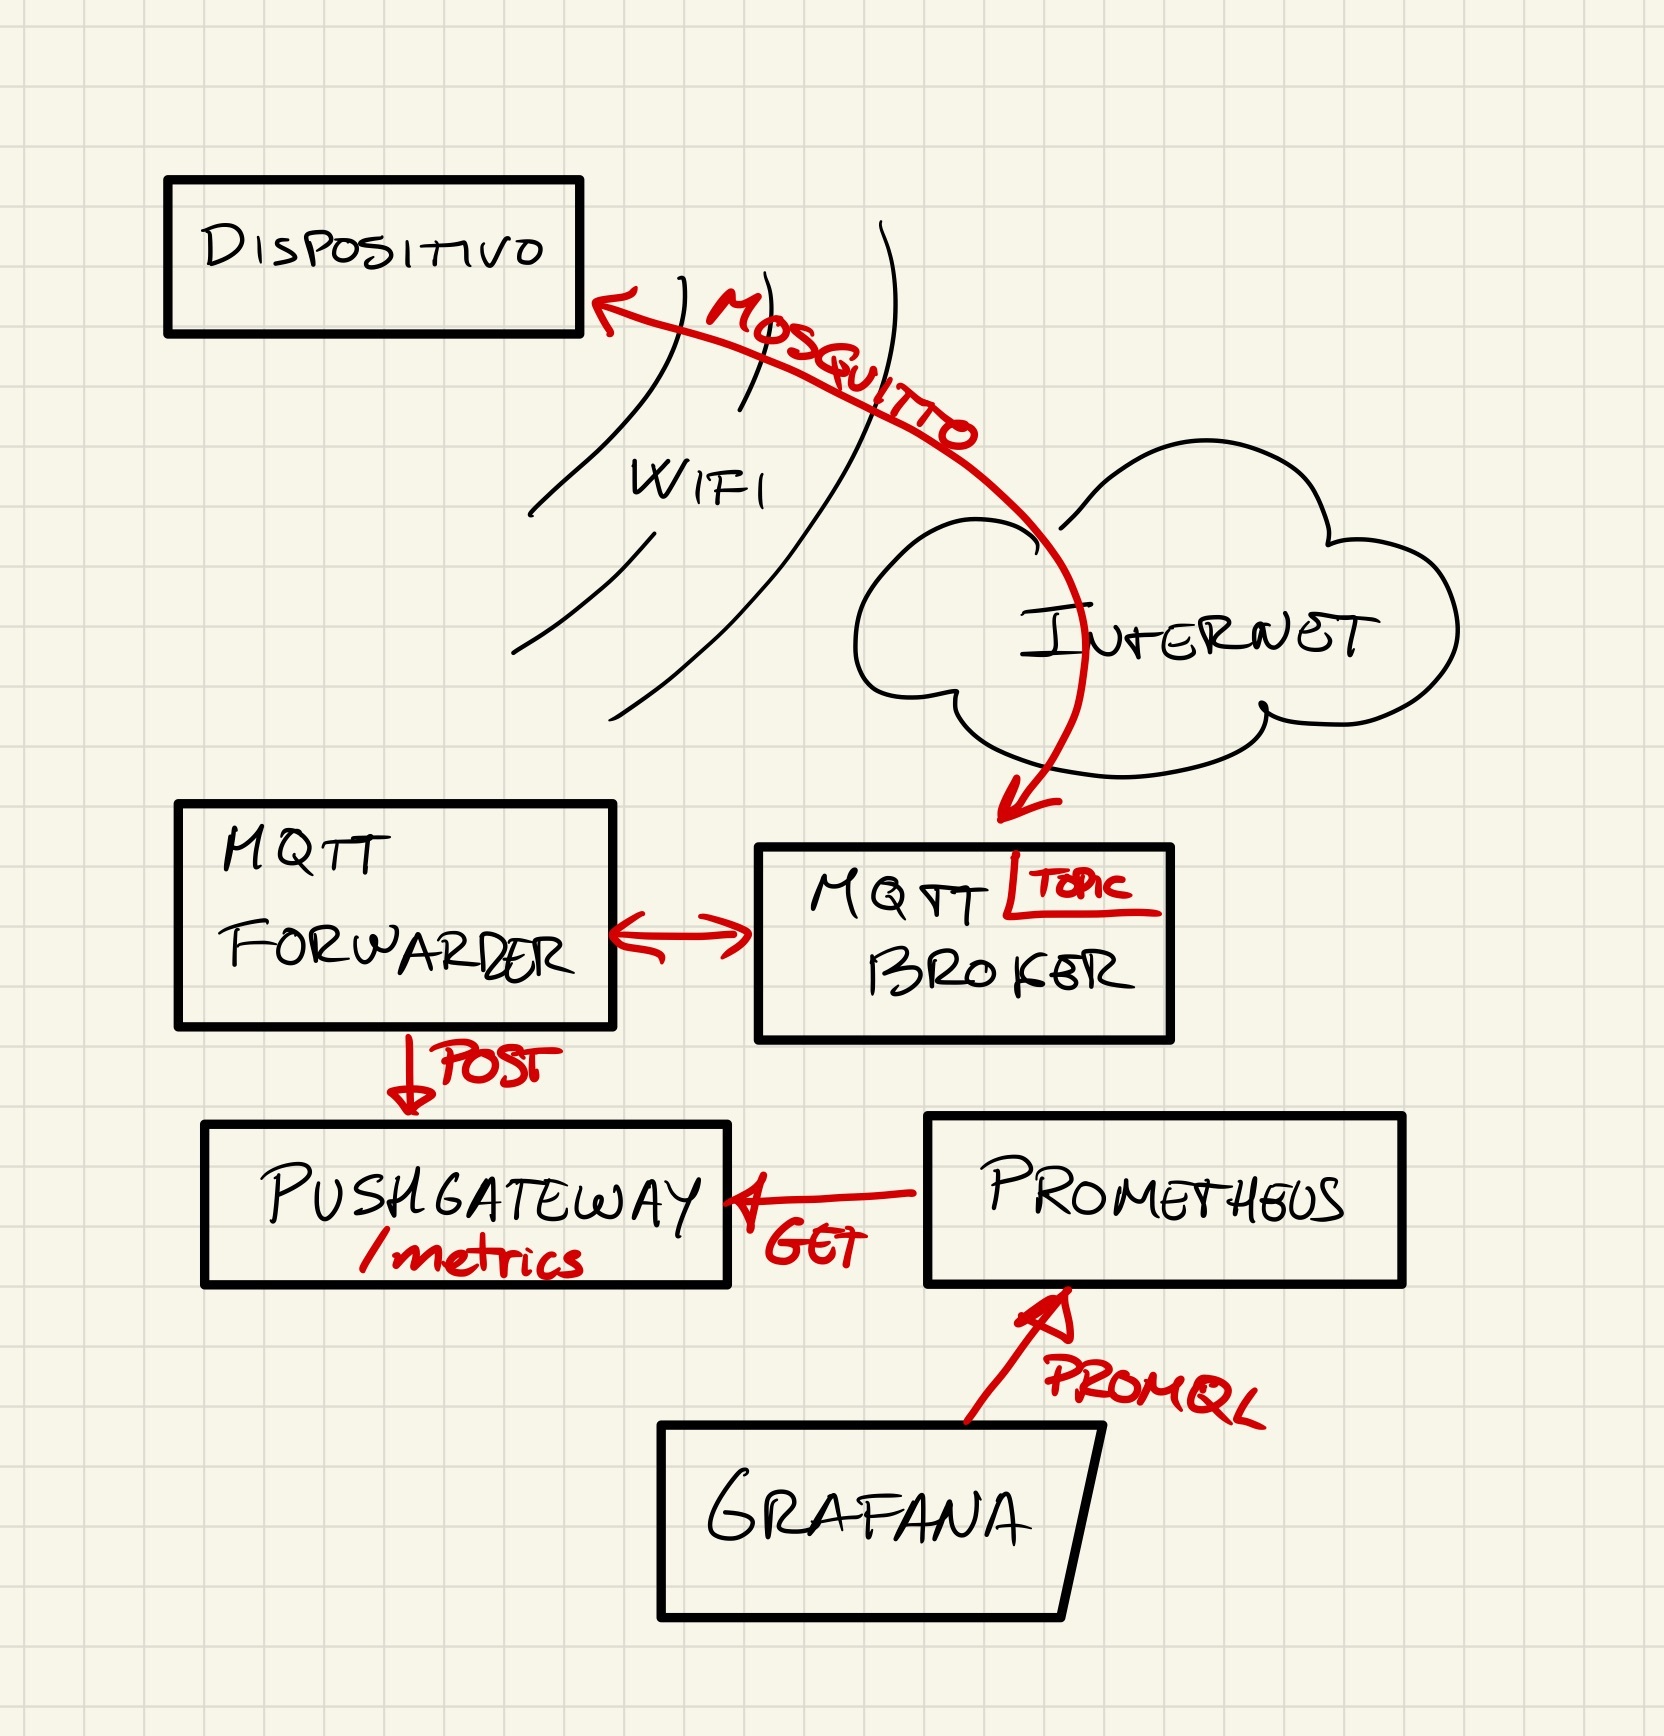 DISPOSITIVO
MOSQUITTO
WIFI
INTERNET
MQTT
FORWARDER
MQTT
TOPIC
BROKER
POST
PUSHGATEWAY
/metrics
GET
PROMETHEUS
PROMQL
GRAFANA